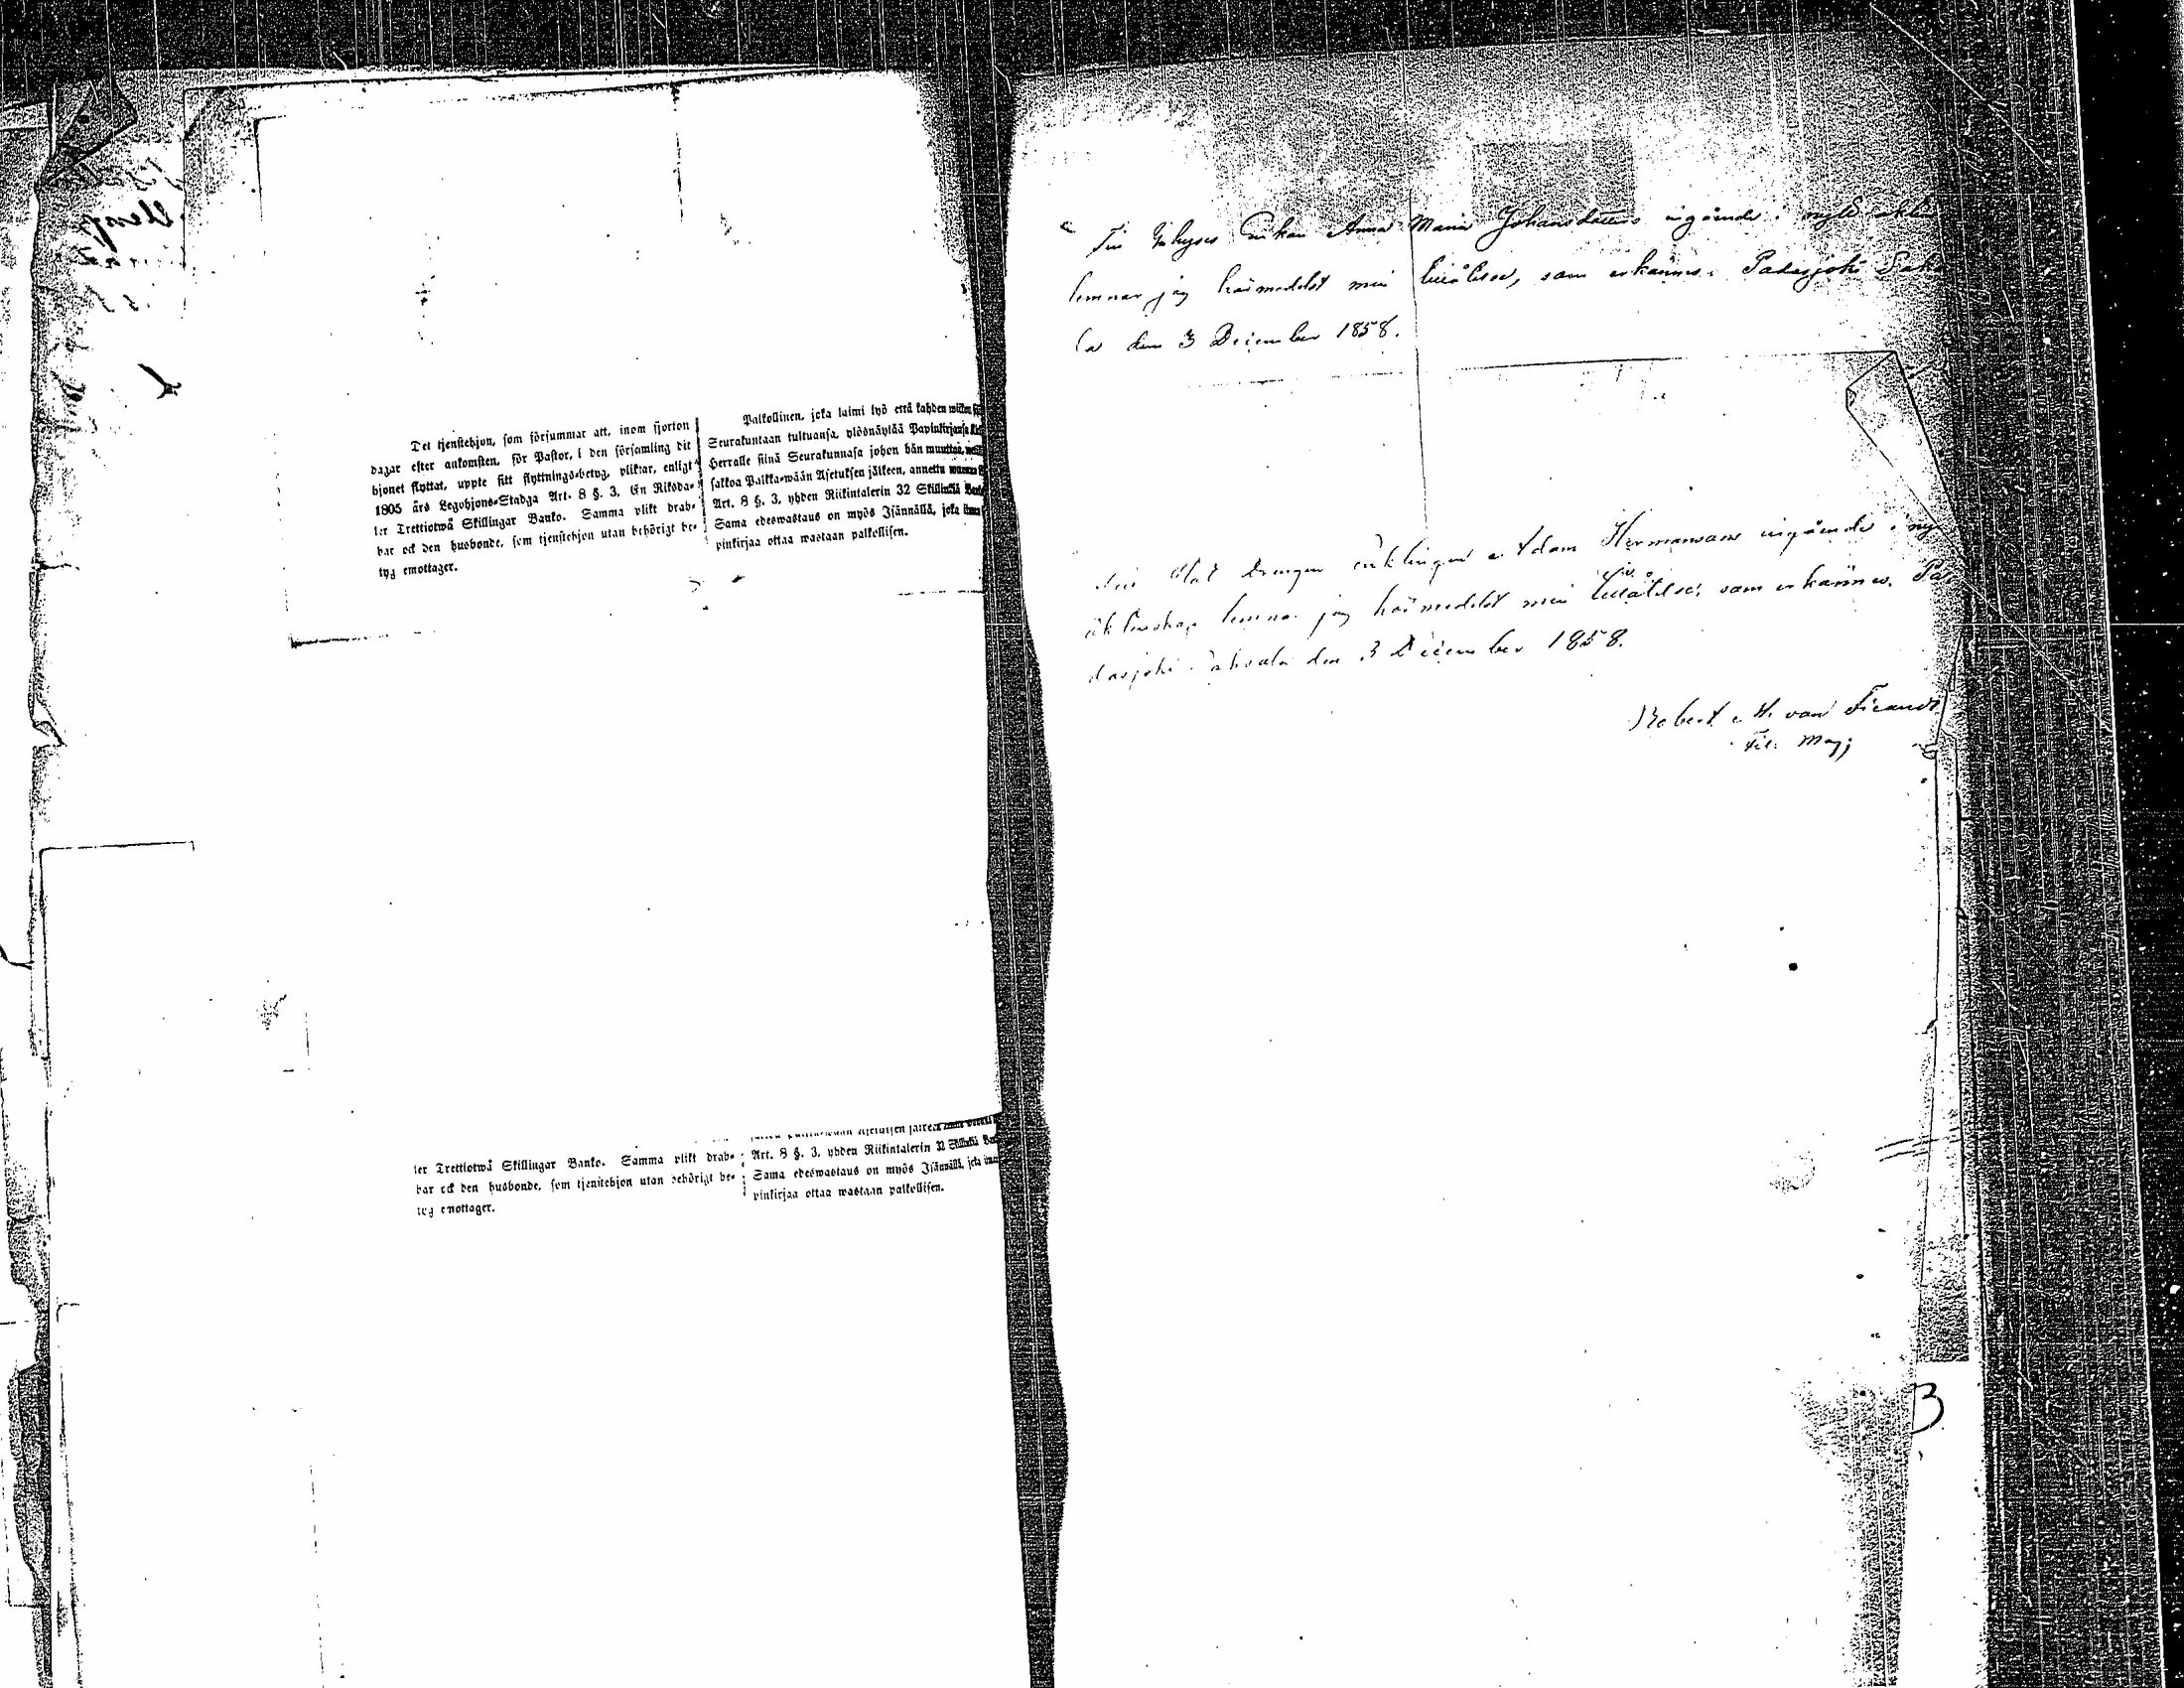 Det tjenstehjon, som försummar att, inom fjorton
dagar efter ankomsten, för Pastor, i den församling dit
hjonet flyttat, uppte sitt flyttnings-betyg, pliktar, enligt
1805 års Legohjons-Stadga Art. 8 §. 3, En Riksda-
ler Trettiotwå Skillingar Banko. Samma plikt drab-
bar ock den husbonde, som tjenstehjon utan behörigt be-
tyg emottager.
Palkollinen, joka laimi lyö että kahden wiikon
Seurakuntaan tultuansa, ylösnäyttää Papinkirjansa
Herralle siinä Seurakunnasa johon hän muuttaa,
sakkoa Palkka-wään Asetuksen jälkeen, annettu
Art. 8 §. 3, yhden Riikintalerin 32 Skillinkiä
Sama edeswastaus on myös Isännällä, joka
pinkirjaa ottaa wastaan palkollisen.
ler Trettiotwå Skillingar Banko. Samma plikt drab-
bar ock den husbonde, som tjenstehjon utan behörigt be-
tyg emottager.
Art. 8 §. 3, yhden Riikintalerin 32 Skillinkiä
Sama edeswastaus on myös Isännällä, joka
pinkirjaa ottaa wastaan palkollisen.
Enkan Anna Maria Johansdotters ingående i nytt
lemnar jag härmedelst min tillåtelse, som erkännes. Padasjoki
la den 3 December 1858.
Drengen enklingen Adam Hermanssons ingående i
äktenskap lemnar jag härmedelst min tillåtelse, som erkännes. Pa
dasjoki den 3 December 1858.
Robert M. von Fieandt
3